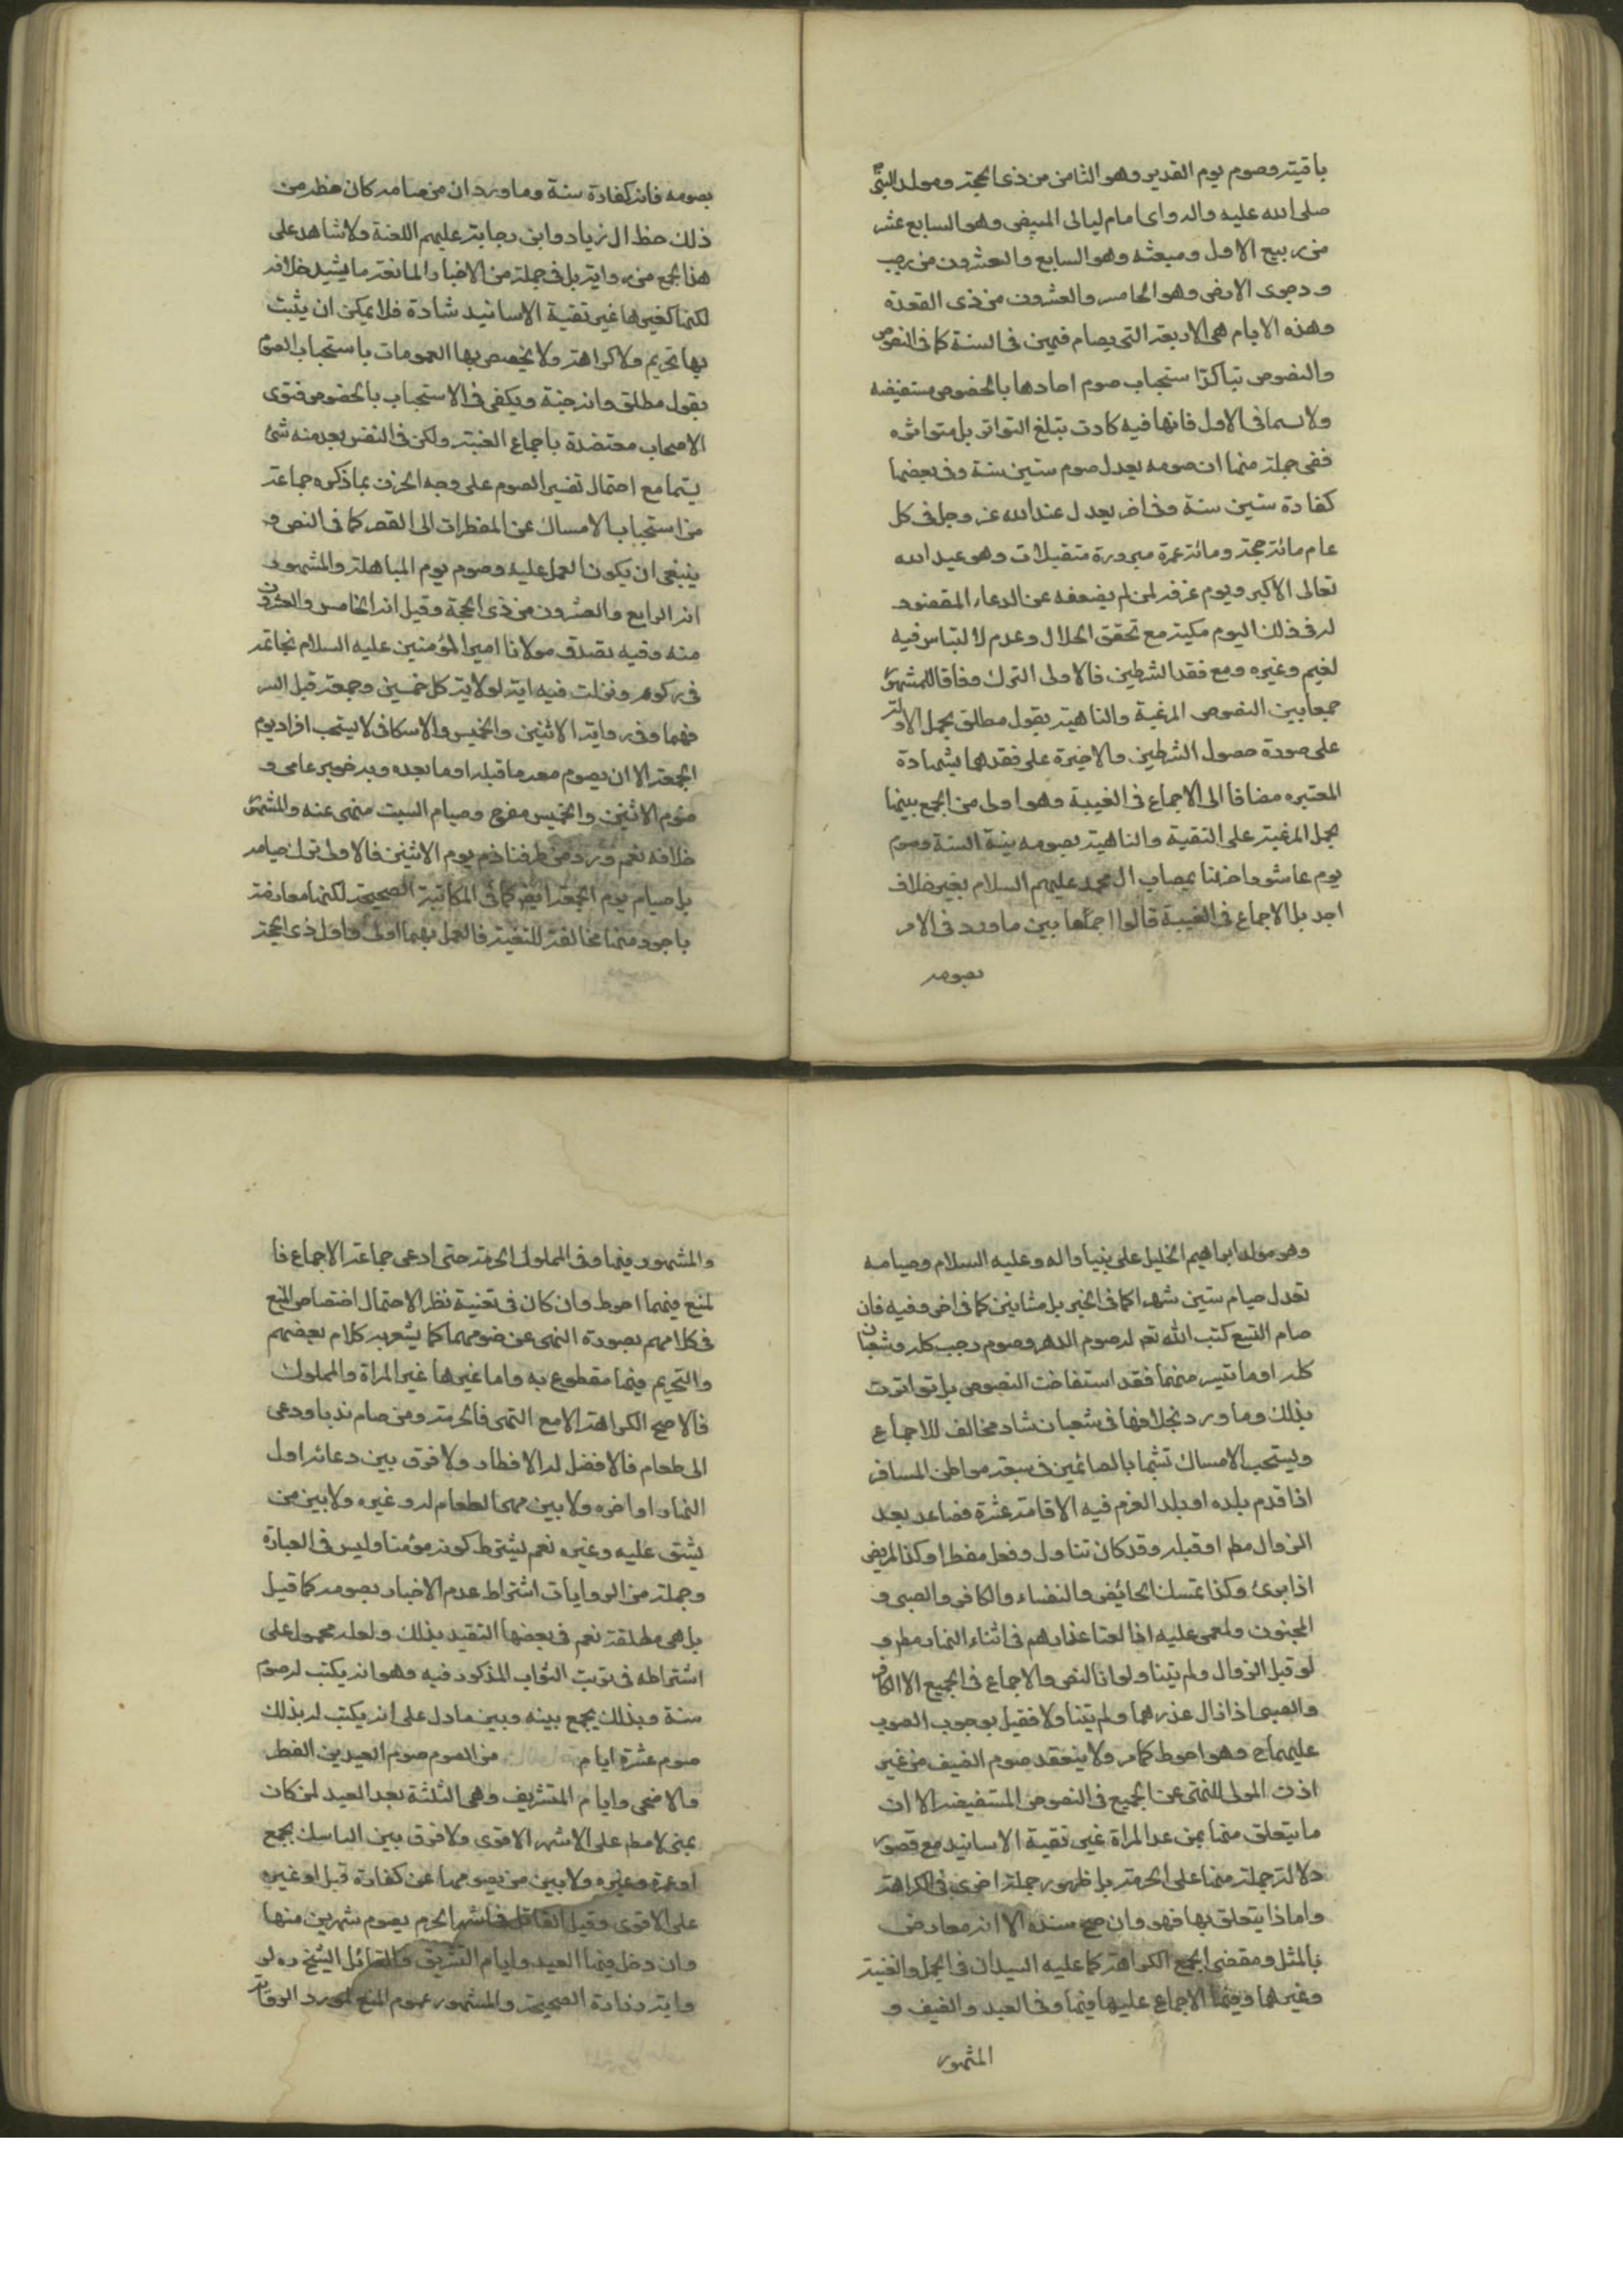 باقيته وصوم يوم الغدير وهو الثامن من ذى الحجة ومولد النبى
صلى الله عليه واله واى امام ليالى البيض وهو السابع عشر
من ربيع الاول ومبعثه وهو السابع والعشرون من رجب
ودحوى الارض وهو الخامس والعشرون من ذى القعدة
وهذه الايام هى الاربعة التى يصام فيهن فى السنة كما فى النصوص
والنصوص بتاكد استحباب صوم احادها بالخصوص مستفيضه
ولاسيما فى الاول فانها فيه كادت تبلغ التواتر بل متواتره
ففى جملة منها ان صومه يعدل صوم ستين سنة وفى بعضها
كفارة ستين سنة وفى اخر يعدل عند الله عز وجل فى كل
عام مائة حجة ومائة عمرة مبرورة متقبلات وهو عيد الله
تعالى الاكبر ويوم عرفة لمن لم يضعفه عن الدعاء المقصود
له فى ذلك اليوم مكية مع تحقق الهلال وعدم الالتباس فيه
لغيم وغيره ومع فقد الشرطين فالاولى الترك وفاقا للمشهور
جمعا بين النصوص المرغبة والناهية بقول مطلق بحمل الاولة
على صورة حصول الشرطين والاخيرة على فقدهما بشهادة
المعتبره مضافا الى الاجماع فى الغيبة وهو اولى من الجمع بينها
بحمل المرغبة على التقية والناهية بصومه بنية السنة وصوم
يوم عاشورا حزنا بمصاب ال محمد عليهم السلام بغير خلاف
اجد بل الاجماع فى الغيبة قالوا جمعا بين ما ورد فى الامر
بصومه
بصومه فانه كفارة سنة وما ورد ان من صامه كان حظه من
ذلك حظ ال زياد وابن مرجانة عليهم اللعنة ولا شاهد على
هذا الجمع من رواية بل فى جملة من الاخبار المانعة ما يشيد خلافه
لكنها كغيرها غير نقية الاسانيد شاذة فلا يمكن ان يثبت
بها تحريم ولا كراهة ولا يخصص بها العمومات باستحباب الصوم
بقول مطلق وانه جنة ويكفى فى الاستحباب بالخصوص فتوى
الاصحاب معتضدة باجماع الغنية ولكن فى النفس بعد منه شئ
سيما مع احتمال تفسير الصوم على وجه الحزن بما ذكره جماعة
من استحباب الامساك عن المفطرات الى العصر كما فى النص و
ينبغى ان يكون العمل عليه وصوم يوم المباهلة والمشهور
انه الرابع والعشرون من ذى الحجة وقيل انه الخامس والعشرون
منه وفيه تصدق مولانا امير المؤمنين عليه السلام بخاتمه
فى ركوعه ونزلت فيه اية الولاية وكل خميس وجمعة قيل السر
فيهما وفى رواية الاثنين والخميس والاسكافى لا يستحب افراد يوم
الجمعة الا ان يصوم معه ما قبله او ما بعده وبه خبر عامى و
صوم الاثنين والخميس مفرح وصيام السبت منهى عنه والمشهور
خلافه نعم ورد من طرفنا ذم يوم الاثنين فالاولى ترك صيامه
بل صيام يوم الجمعة ايض كما فى المكاتبة الصحيحة لكنها معارضة
باجود منها مخالفة للتقية فالعمل بهما اولى واول ذى الحجة
وهو مولد ابراهيم الخليل على نبينا واله وعليه السلام وصيامه
تعدل صيام ستين شهرا كما فى الخبر بل مثانين كما فى اخر وفيه فان
صام التسع كتب الله تعم له صوم الدهر وصوم رجب كله وشعبان
كله او ما تيسر منهما فقد استفاضت النصوص بل تواترت
بذلك وما ورد بخلافها فى شعبان شاذ مخالف للاجماع
ويستحب الامساك تشبها بالصائمين فى سبعة مواطن المسافر
اذا قدم بلده او بلد العزم فيه الاقامة عشرة فصاعد بعد
الزوال مطر او قبله وقد كان تناول وفعل مفطرا وكذا المريض
اذا برئ وكذا تمسك الحائض والنفساء والكافر والصبى و
المجنون والمغمى عليه اذا لعتا عذارهم فى اثناء النهار مطر و
لو قبل الزوال ولم يتناولوا ذا النص والاجماع فى الجميع الا الكافر
والصبى اذا زال عذرهما ولم يتناولا فقيل بوجوب الصوم
عليهماح وهو احوط كما مر ولا ينعقد صوم الضيف من غير
اذن المولى للنهى عن الجميع فى النصوص المستفيضه الا ان
ما يتعلق منها بمن عدا المراة غير نقية الاسانيد مع قصور
دلالة جملة منها على الحرمة بل ظهور جملة اخرى فى الكراهة
واما ذا يتعلق بها فهو وان صح سنده الا انه معارض
بالمثل ومقضى الجمع الكراهة كما عليه السيدان فى الجمل والغنية
وغيرهما وفيها الاجماع عليها فيها وفى العبد والضيف و
المشهور
والمشهور فيها وفى المملوك الحرمة حتى ادعى جماعة الاجماع فا
لمنع فيهما احوط وان كان فى تعينه نظر لاحتمال اختصاص المنع
فى كلامهم بصورة النهى عن صومهما كما يشعر به كلام بعضهم
والتحريم فيها مقطوع به واما غيرها غير المراة والمملوك
فالاصح الكراهة الا مع النهى فالحرمة ومن صام ندبا ودعى
الى طعام فالافضل له الافطار ولا فرق بين دعائه اول
النهار او اخره ولا بين مهى الطعام له وغيره ولا بين من
يشق عليه وغيره نعم يشترط كونه مؤمنا وليس فى العبارة
وجملة من الروايات اشتراط عدم الاخبار بصومه كما قيل
بل هى مطلقة نعم فى بعضها التقيد بذلك ولعله محمول على
اشتراطه فى ترتب الثواب المذكور فيه وهو انه يكتب له صوم
سنة وبذلك يجمع بينه وبين ما دل على انه يكتب له بذلك
صوم عشرة ايام من الصوم صوم العيدين الفطر
والاضحى وايام التشريف وهى الثلثة بعد العيد لمن كان
بمنى لا مطر على الاشهر الاقوى ولا فرق بين الناسك بجمع
او عمرة وغيره ولا بين من يصومها عن كفارة قبل او غيره
على الاقوى وقيل القاتل فى اشهر الحرم يصوم شهرين منها
وان دخل فيهما العيد وايام التشريق والقائل الشيخ ره لر
واية زرارة الصحيحة والمشهور عموم المنع لمورد الرواية